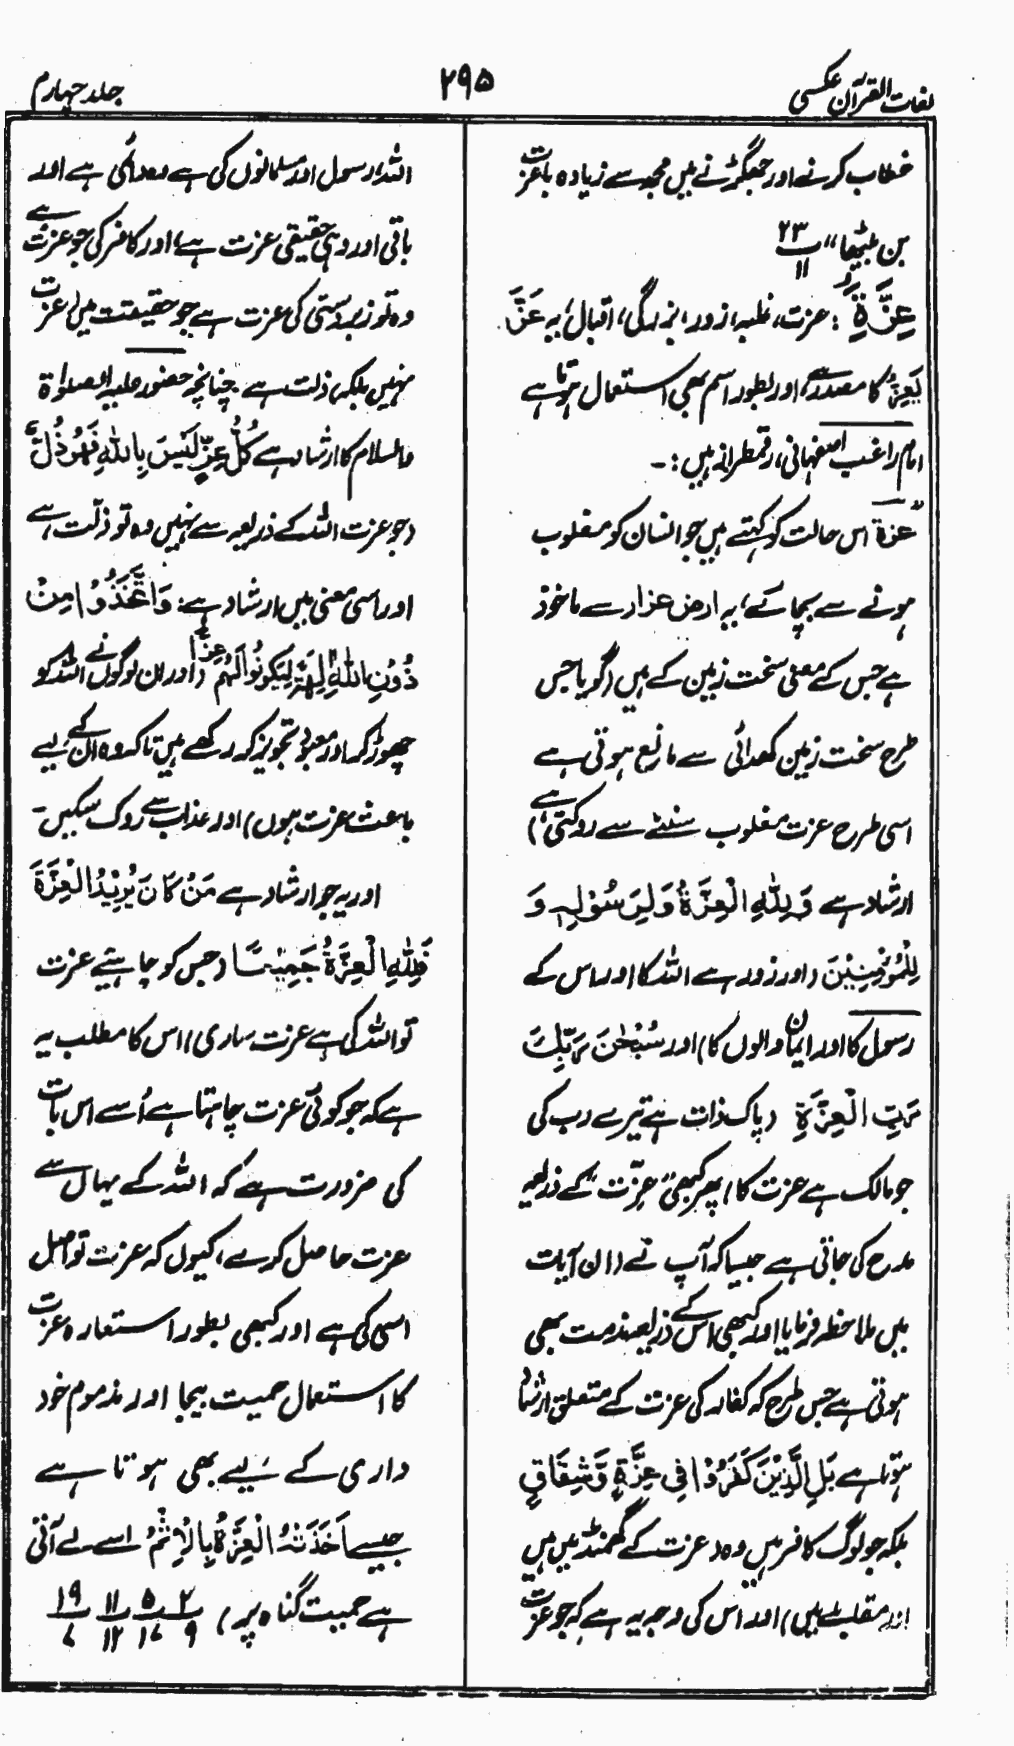 لغات القرآن عکسی
۲۹۵
جلد چہارم
خطاب کرنے اور جھگڑنے میں مجھ سے زیادہ باعزت
بن بیٹھا“ ۲۳/۱۱
عِزَّةِ : عزت، غلبہ، زور، بزرگی، اقبال، یہ عَزَّ
یَعِزُّ کا مصدر ہے، اور بطور اسم بھی استعمال ہوتا ہے
امام راغب اصفہانی، رقمطراز ہیں :۔
”عزة اس حالت کو کہتے ہیں جو انسان کو مغلوب
ہونے سے بچائے، یہ ارض عزاز سے ماخوذ
ہے جس کے معنی سخت زمین کے ہیں (گویا جس
طرح سخت زمین کھدائی سے مانع ہوتی ہے
اسی طرح عزت مغلوب بننے سے روکتی ہے)
ارشاد ہے وَلِلّٰهِ الْعِزَّةُ وَلِرَسُوْلِهٖ وَ
لِلْمُؤْمِنِيْنَ (اور زور ہے اللہ کا اور اس کے
رسول کا اور ایمان والوں کا) اور سُبْحٰنَ رَبِّكَ
رَبِّ الْعِزَّةِ (پاک ذات ہے تیرے رب کی
جو مالک ہے عزت کا) پھر کبھی ”عزّت“ کے ذریعہ
مدح کی جاتی ہے جیسا کہ آپ نے (ان آیات
میں ملاحظہ فرمایا اور کبھی اس کے ذریعہ مذمت بھی
ہوتی ہے جس طرح کہ کفار کی عزت کے متعلق ارشاد
ہوتا ہے بَلِ الَّذِيْنَ كَفَرُوْا فِي عِزَّةٍ وَّشِقَاقٍ
بلکہ جو لوگ کافر ہیں وہ عزت کے گھمنڈ میں ہیں
اور مقابلے میں) اور اس کی وجہ یہ ہے کہ جو عزت
اللہ، رسول اور مسلمانوں کی ہے وہ دائمی ہے اور
باقی اور وہی حقیقی عزت ہے، اور کافر کی جو عزت ہے
وہ تو زبردستی کی عزت ہے جو حقیقت میں عزت
نہیں بلکہ ذلت ہے۔ چنانچہ حضور علیہ الصلوٰة
والسلام کا ارشاد ہے كُلُّ عِزٍّ لَيْسَ بِاللّٰهِ فَهُوَ ذُلٌّ
(جو عزت اللہ کے ذریعہ سے نہیں وہ تو ذلت ہے
اور اسی معنی میں ارشاد ہے: وَاتَّخَذُوْا مِنْ
دُوْنِ اللّٰهِ اٰلِهَةً لِّيَكُوْنُوْا لَهُمْ عِزًّا (اور ان لوگوں نے اللہ کو
چھوڑ کر اور معبود تجویز کر رکھے ہیں تاکہ وہ ان کے لیے
باعث عزت ہوں) اور عذاب سے روک سکیں۔
اور یہ جو ارشاد ہے مَنْ كَانَ يُرِيْدُ الْعِزَّةَ
فَلِلّٰهِ الْعِزَّةُ جَمِيْعًا (جس کو چاہیئے عزت
تو اللہ کی ہے عزت ساری) اس کا مطلب یہ
ہے کہ جو کوئی عزت چاہتا ہے اُسے اس بات
کی ضرورت ہے کہ اللہ کے یہاں سے
عزت حاصل کرے، کیوں کہ عزت تو اصل
اسی کی ہے اور کبھی بطور استعارہ عزت
کا استعمال حمیت بیجا اور مذموم خود
داری کے لیے بھی ہوتا ہے
جیسے اَخَذَتْهُ الْعِزَّةُ بِالْاِثْمِ اسے لے آتی
ہے حمیت گناہ پر) ۲/۹ ۵/۱۷ ۱۱/۱۲ ۱۹/۷